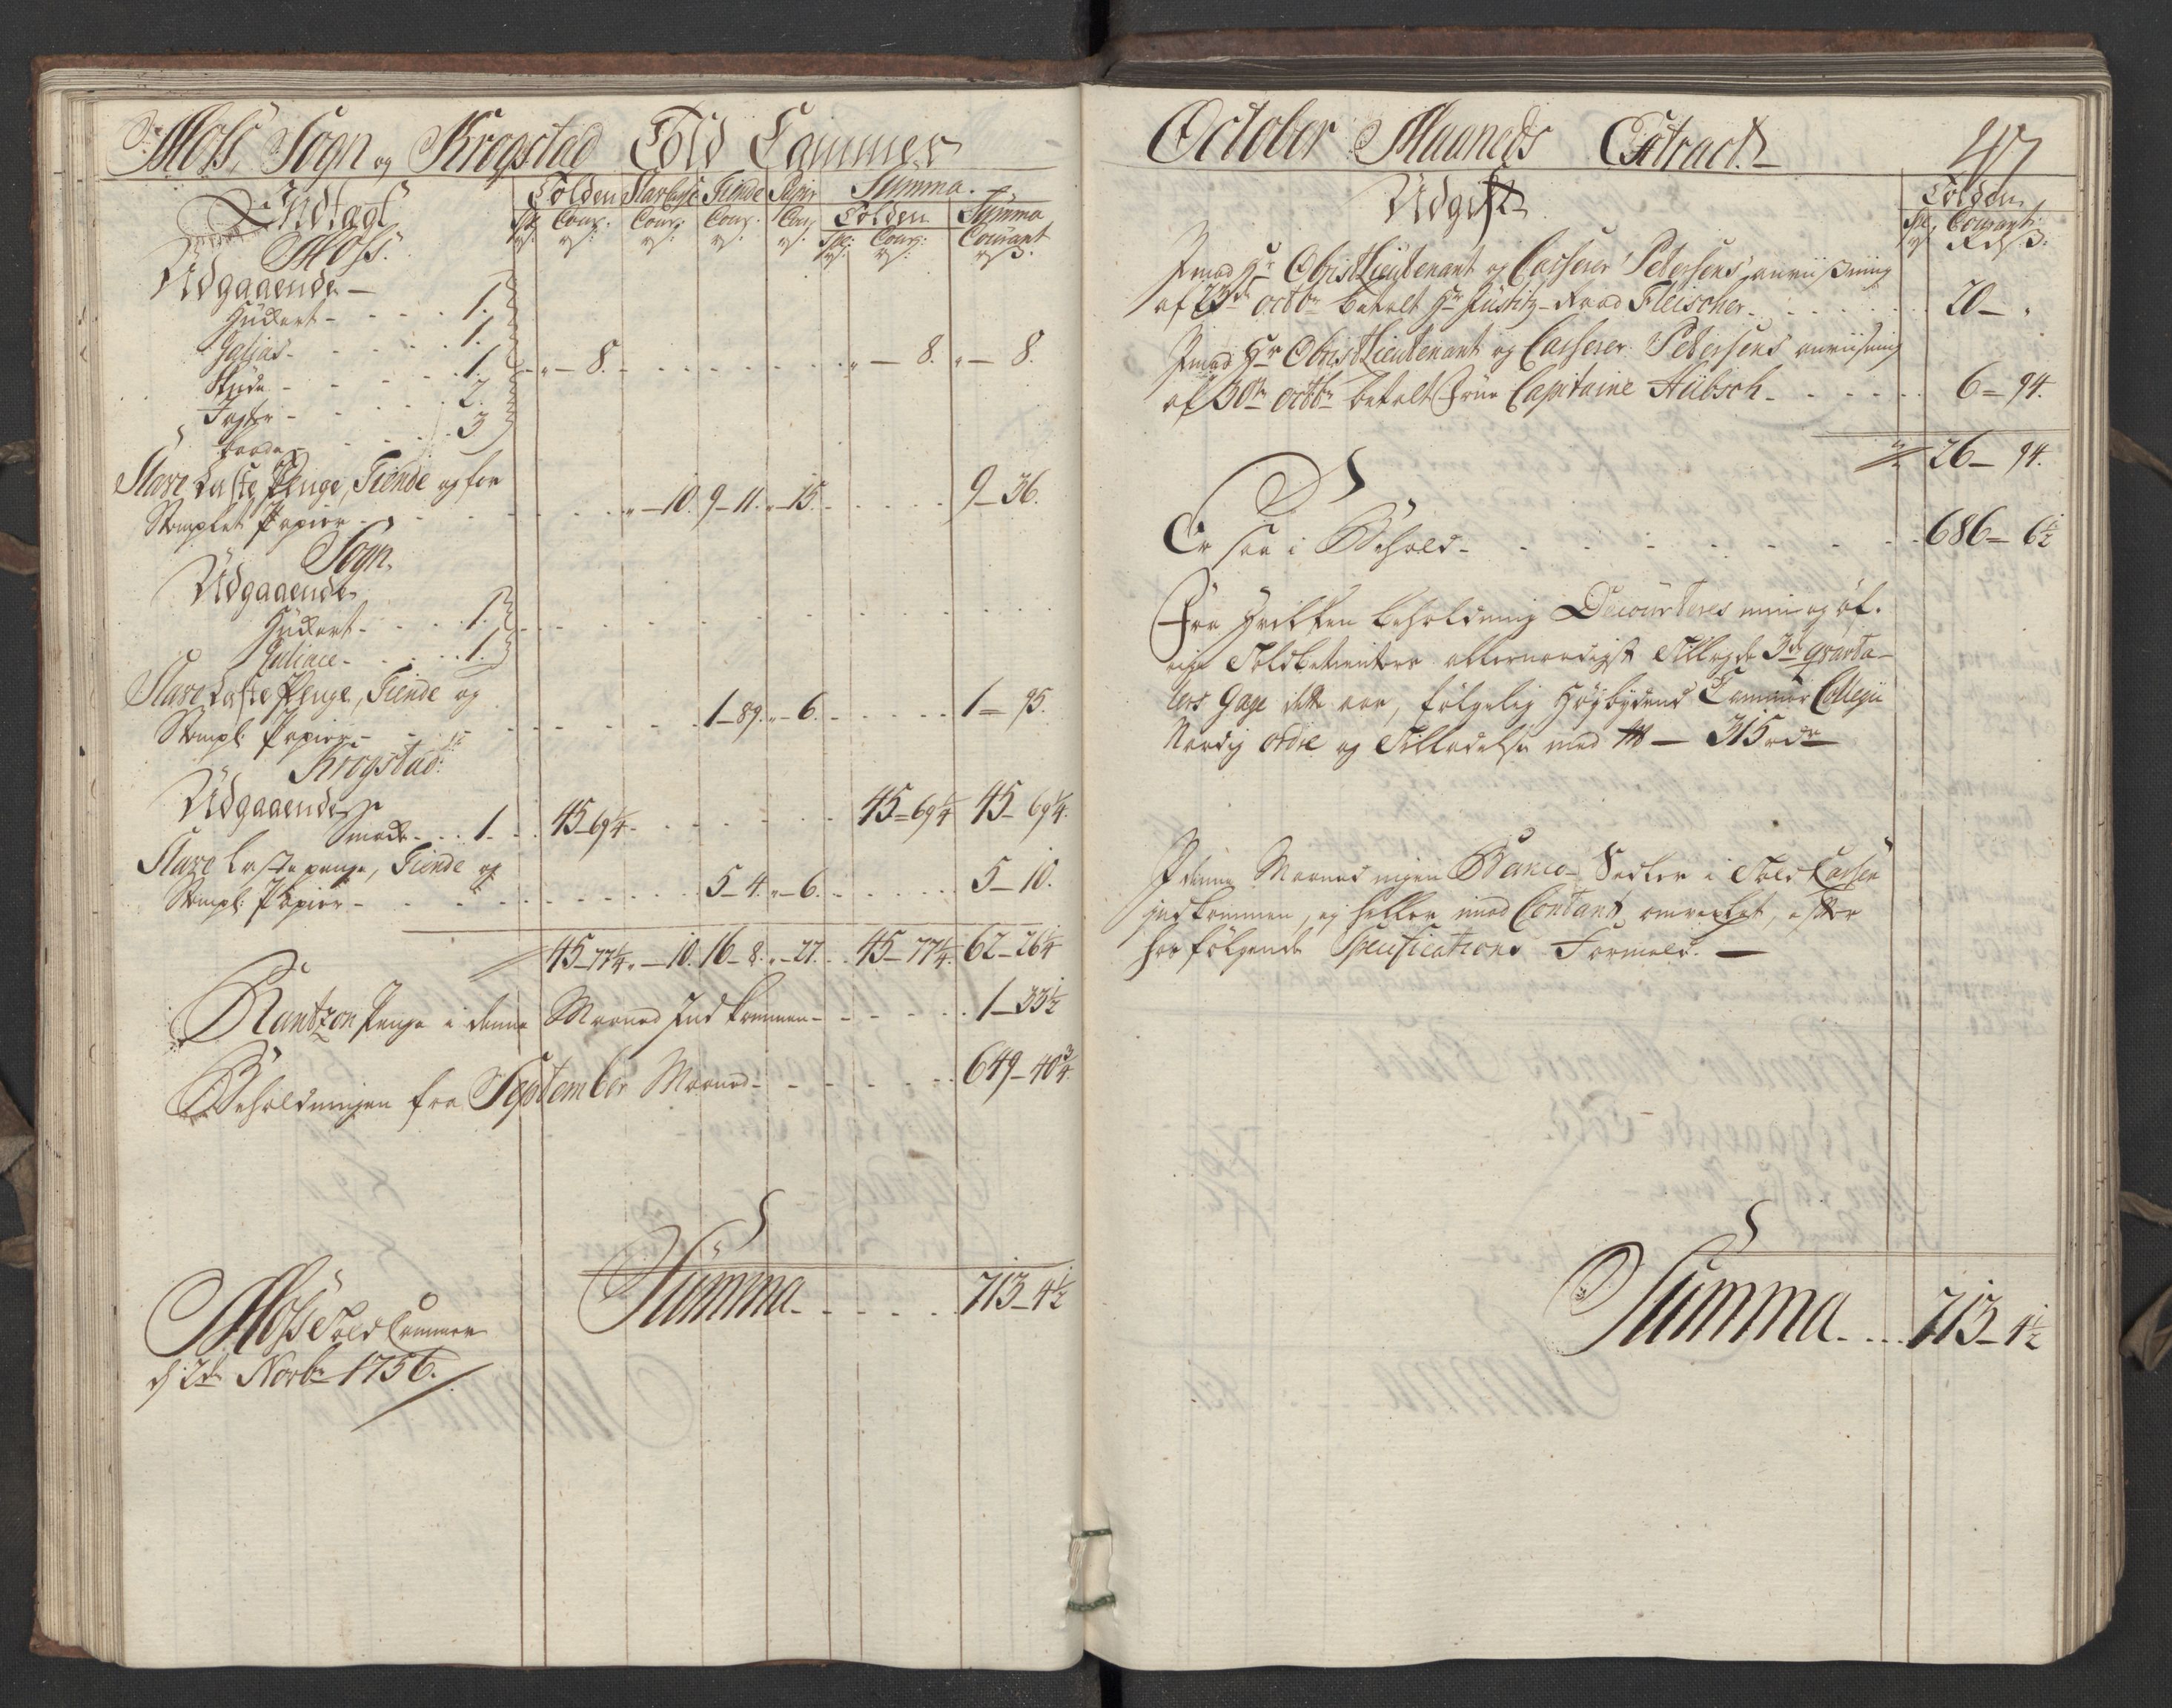 Moss, Sogn og Krogstad Told Cammer
Tolden Slavelast Tiende Papir Summa.
Indtægt Sp: Cour: Cour: Cour: Cour Tolden Summa
Moss. Spe: Cour: Courant
Udgaaende
Huckert - - - - 1.
Galias - - - - 1.
Skude - - - - 1. - „ - 8. - - - - - „ - 8. „ - 8.
Jagter - - - - 2.
baade - - - - 3
Slave Laste Penge, Tiende og for
Stemplet Papiir - - - „ - 10. 9 - 11. „ - 15. - - - 9 - 36.
Sogn.
Udgaaende
Huckert - - - 1.
Galiace - - - 1.
Slave Laste Penge, Tiende og
Stempl: Papiir - - - 1 - 89. „ - 6. - - - 1 - 95.
Krogstad:
Udgaaende
Smack - - 1. - 45 - 69 1/4 - - - - 45 - 69 1/4 45 - 69 1/4.
Slave Laste penge, Tiende og
Stempl: Papiir - - - 5 - 4. „ - 6. - - - 5 - 10.
45 - 77 1/4 „ - 10. 16 - 8. „ - 27. - 45 - 77 1/4. 62 - 26 1/4
Rantzon Penge i denne Maaned Indkommen - - - 1 - 33 1/2
Beholdningen fra September Maaned - - - 649 - 40 3/4.
Summa - - - - 713 - 4 1/2
Moss Told Cammer
d: 2de Novbr 1756.
October Maaneds Extract
47
Udgift
Tolden
Sp: Courant:
Rd ß.
Imod Hr Obrist Lieutenant og Casserer Petersens anviißning
af 23de octbr betalt Hr Justitz-Raad Fleischer - - - - 20 - „
Imod Hr Obrist Lieutenant og Casserer Petersens anviisning
af 30te octbr betalt Frue Capitaine Hübsch - - - - 6 - 94.
26 - 94.
Er saa i Behold - - - - - - 686 - 6 1/2
Fra hvilken beholdning Decourteres min og øf-
rige Toldbetienters allernaadigst Tillagde 3de qvarta-
lers Gage dette aar, følgelig Høybydende Cammer Collegii
Naadig ordre og Tilladelse med - 315 rdr
I denne Maaned ingen Banco-Sedler i Told Cassen
indkommen, ej heller imod Contant omvexlet, efter
her følgende Specifications Formeld. -
Summa - - - 713 - 4 1/2